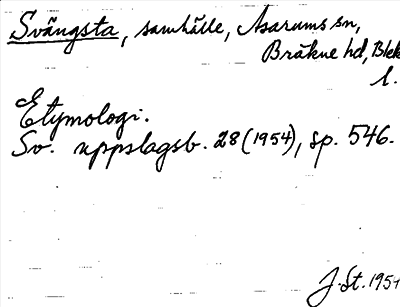 Svängsta, samhälle, Asarums sn,
Bräkne hd, Blek
l.
Etymologi.
Sv. uppslagsb. 28 (1954), sp. 546.
J. St. 1954